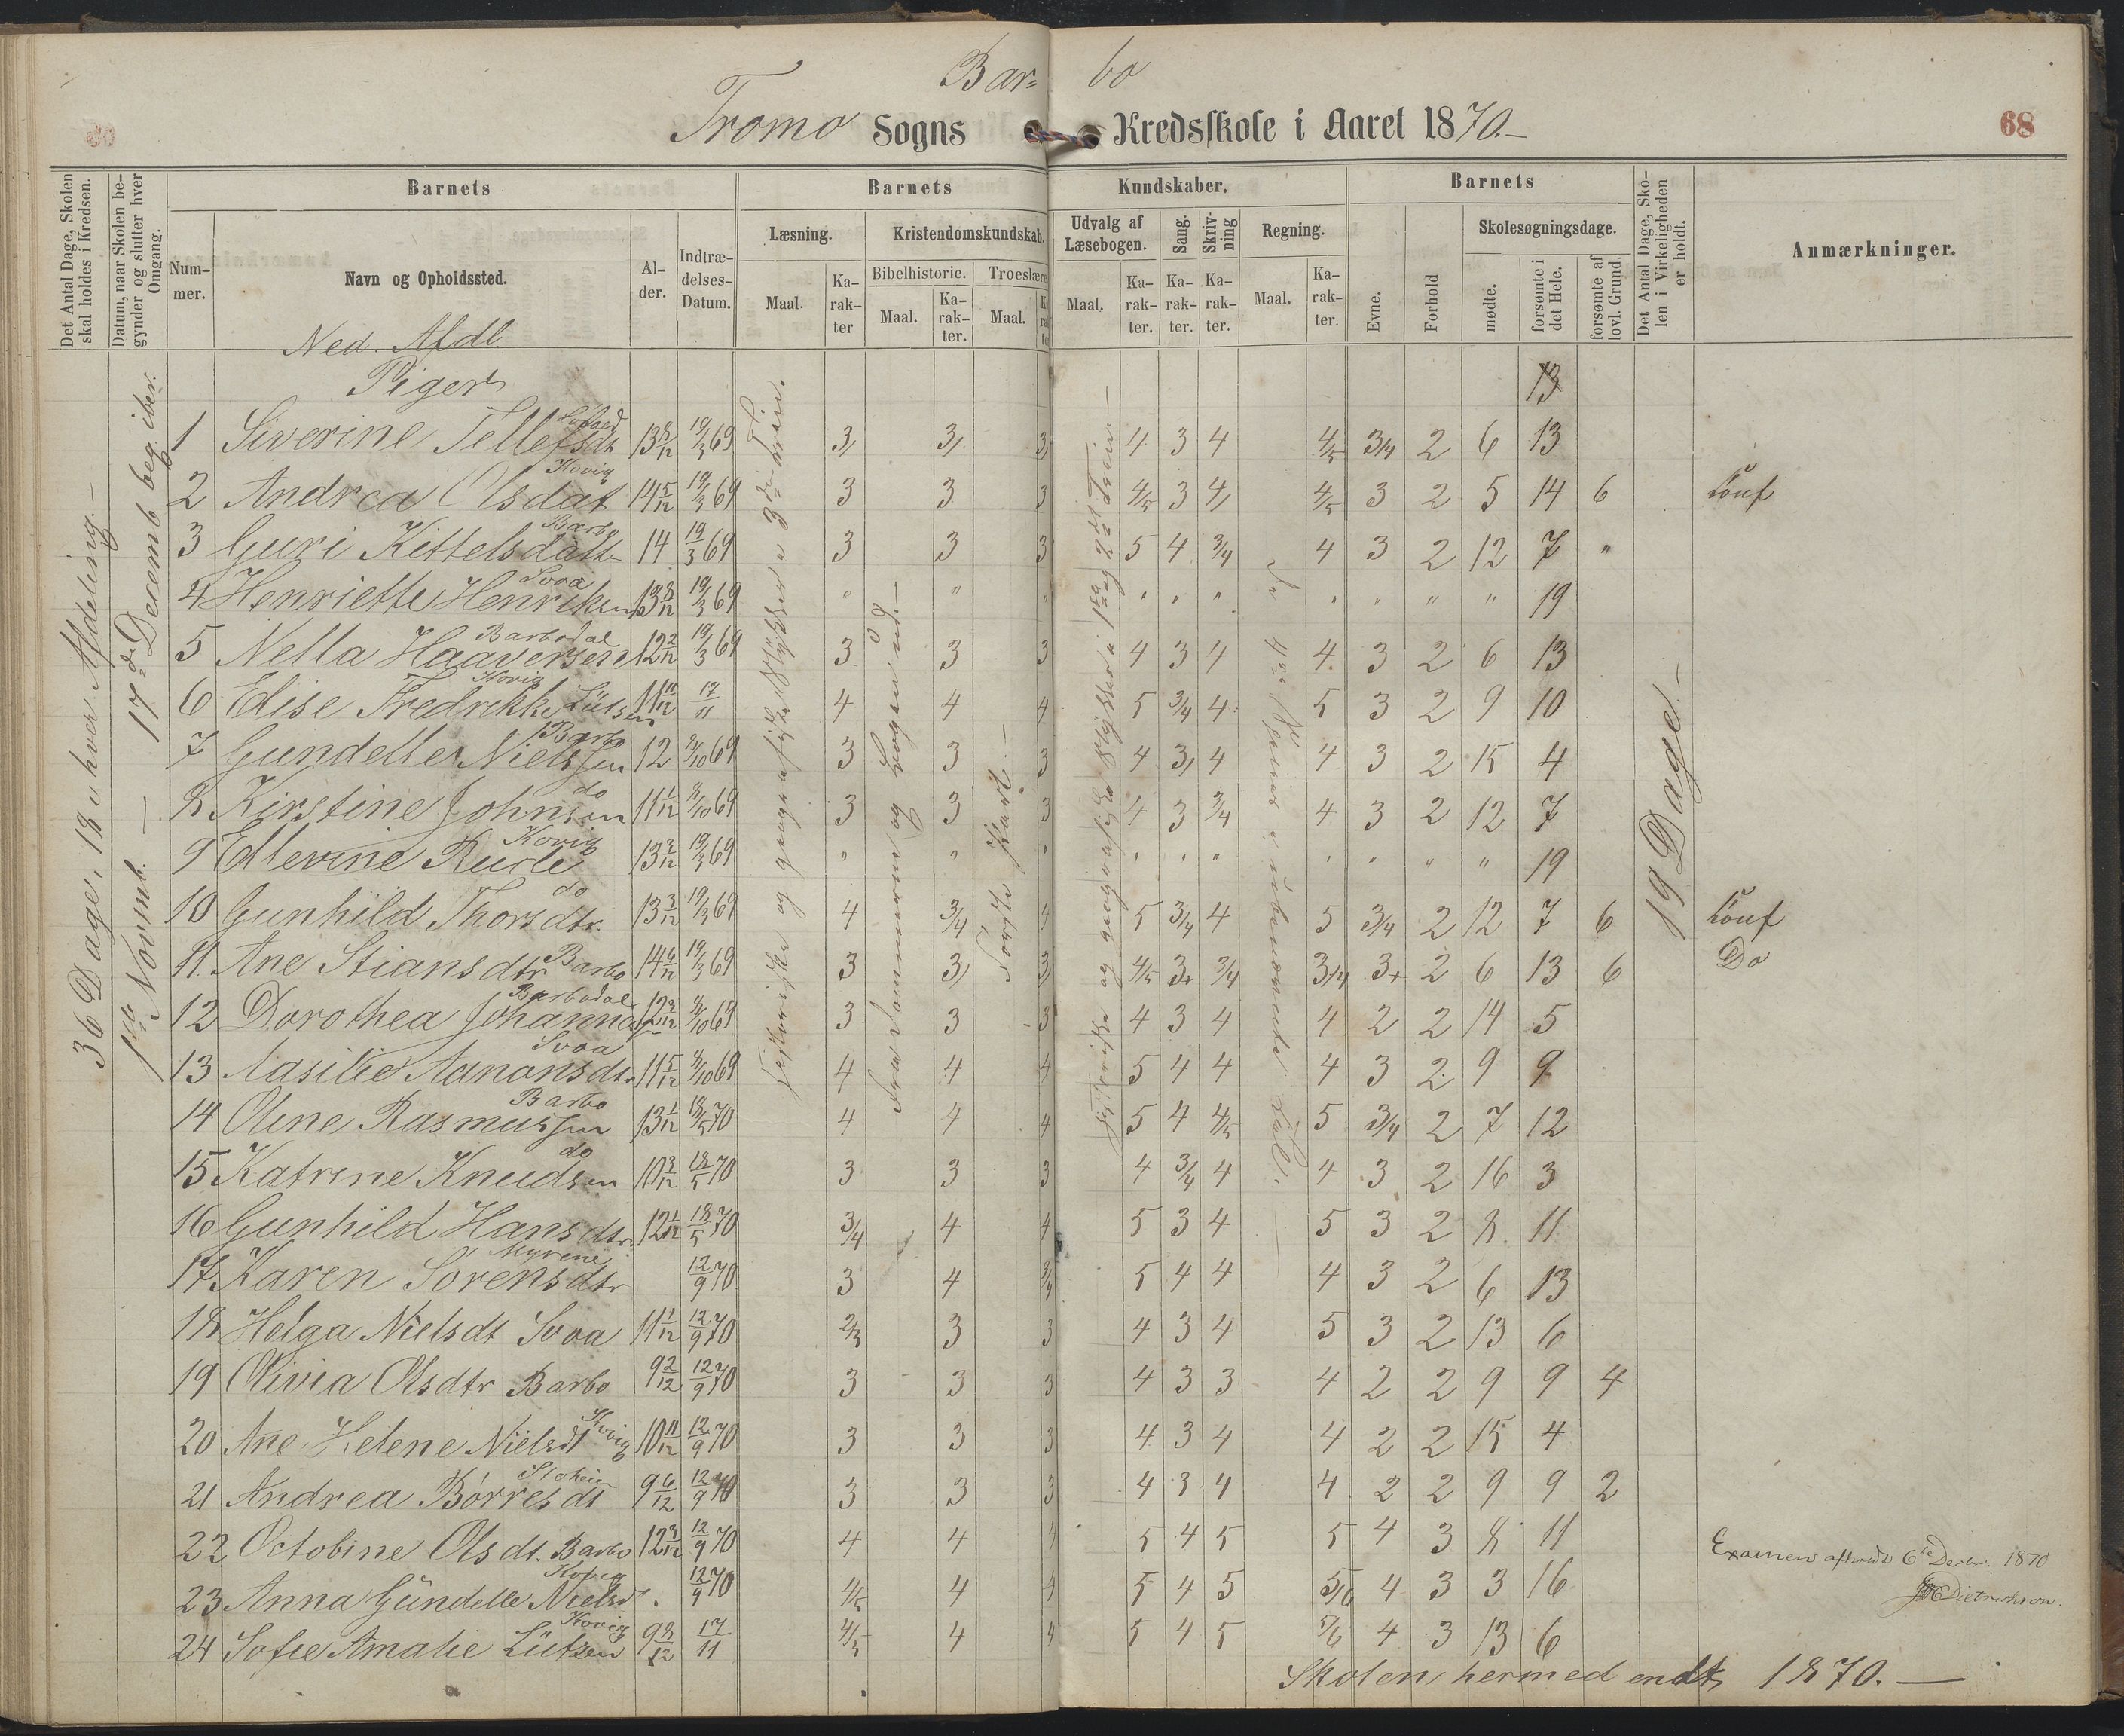 Bar= bo
Tromø Sogns Kredsskole i Aaret 1870.—
68
Det Antal Dage, Skolen skal holdes i Kredsen.
Datum, naar Skolen begynder og slutter hver Omgang.
Barnets
Barnets
Kundskaber.
Barnets
Det Antal Dage, Skolen i Virkeligheden er holdt.
Anmærkninger.
Nummer.
Navn og Opholdssted.
Alder.
Indtrædelses-Datum.
Læsning.
Kristendomskundskab.
Udvalg af Læsebogen.
Sang.
Skrivning
Regning.
Evne.
Forhold
Skolesøgningsdage.
Bibelhistorie.
Troeslære
Maal.
Karakter
Maal.
Karakter.
Maal.
Maal.
Karakter.
Karakter.
Karakter.
Maal.
Karakter.
mødte.
forsømte i det Hele.
forsømte af lovl. Grund.
Ned. Afdl.
Piger
13
36 Dage, 18 u hver Afdeling.—
17de Decemb
1ste Novemb. —
19 Dage.—
1 Siverine Tellefsdt 13 8/12 19/3 69 3 3 3 4 3 4 4/5 3/4 2 6 13
2 Andrea Olsdat Kovig 14 5/12 19/3 69 3 3 3 4/5 3 4 4/5 3 2 5 14 6 Conf
3 Guri Kittelsdatt Barbo 14 19/3 69 3 3 3 5 4 3/4 4 3 2 12 7 "
4 Henriette Henriksen Svoa 13 8/12 19/3 69 " " " " " " " " " " 19
5 Nella Haaversen Barbodal 12 2/12 19/3 69 3 3 3 4 3 4 4 3 2 6 13
6 Edise Fredrikke Lütsen Kovig 11 11/12 17/11 4 4 4 5 3/4 4 5 3 2 9 10
7 Gundelle Nielssen Barbo 12 3/10 69 3 3 3 4 3 4 4 3 2 15 4
8 Kirstine Johnsen do 11 1/12 3/10 69 3 3 3 4 3 3/4 4 3 2 12 7
9 Ellevine Kovig 13 3/12 19/3 69 " " " " " " " " " " 19
10 Gunhild Thorsdtr. do 13 3/12 19/3 69 4 3/4 4 5 3/4 4 5 3/4 2 12 7 6 Conf
11. Ane Stiansdtr Barbo 14 6/12 19/3 69 3 3 3 4/5 3+ 3/4 3/4 3+ 2 6 13 6 Do
12 Dorothea Barbodal 3/10 69 3 3 3 4 3 4 4 2 2 14 5
13 Aasilie Aanonsdtr Svoa 11 5/12 3/10 69 4 4 4 5 4 4 4 3 2 9 9
14 Oline Rasmussen Barbo 13 1/12 18/5 70 4 4 4 5 4 4/5 5 3/4 2 7 12
15 Katrine Knudsen do 10 3/12 18/5 70 3 3 3 4 3/4 4 4 3 2 16 3
16 Gunhild Hansdtr. 12 1/12 18/5 70 3/4 4 4 5 3 4 5 3 2 8 11
17 Karen Sørensdtr Myrene 12/9 70 3 4 3/4 5 4 4 4 3 2 6 13
18 Helga Nielsdt Svoa 11 1/12 12/9 70 2/3 3 3 4 3 4 5 3 2 13 6
19 Olivia Olsdtr Barbo 9 2/12 12/9 70 3 3 3 4 3 3 4 2 2 9 9 4
20 Ane Helene Nielsdt Kovig 10 11/12 12/9 70 3 3 3 4 3 4 4 2 2 15 4
21 Andrea Børresdt 9 6/12 12/9 70 3 3 3 4 3 4 4 2 2 9 9 2
22 Octobine Olsdt. Barbo 12 9/12 12/9 70 4 4 4 5 4 5 5 4 3 8 11
23 Anna Gündelle Nielsd Kovig 12/9 70 4/5 4 4 5 4 5 5/6 4 3 3 16
24 Sofie Amalie Lütsen Kovig 9 8/12 17/11 4/5 4 4 5 4 5 5/6 4 3 13 6
Examen afholdt 6te Decbr. 1870
Dietrichson.
Skolen hermed endt 1870.—